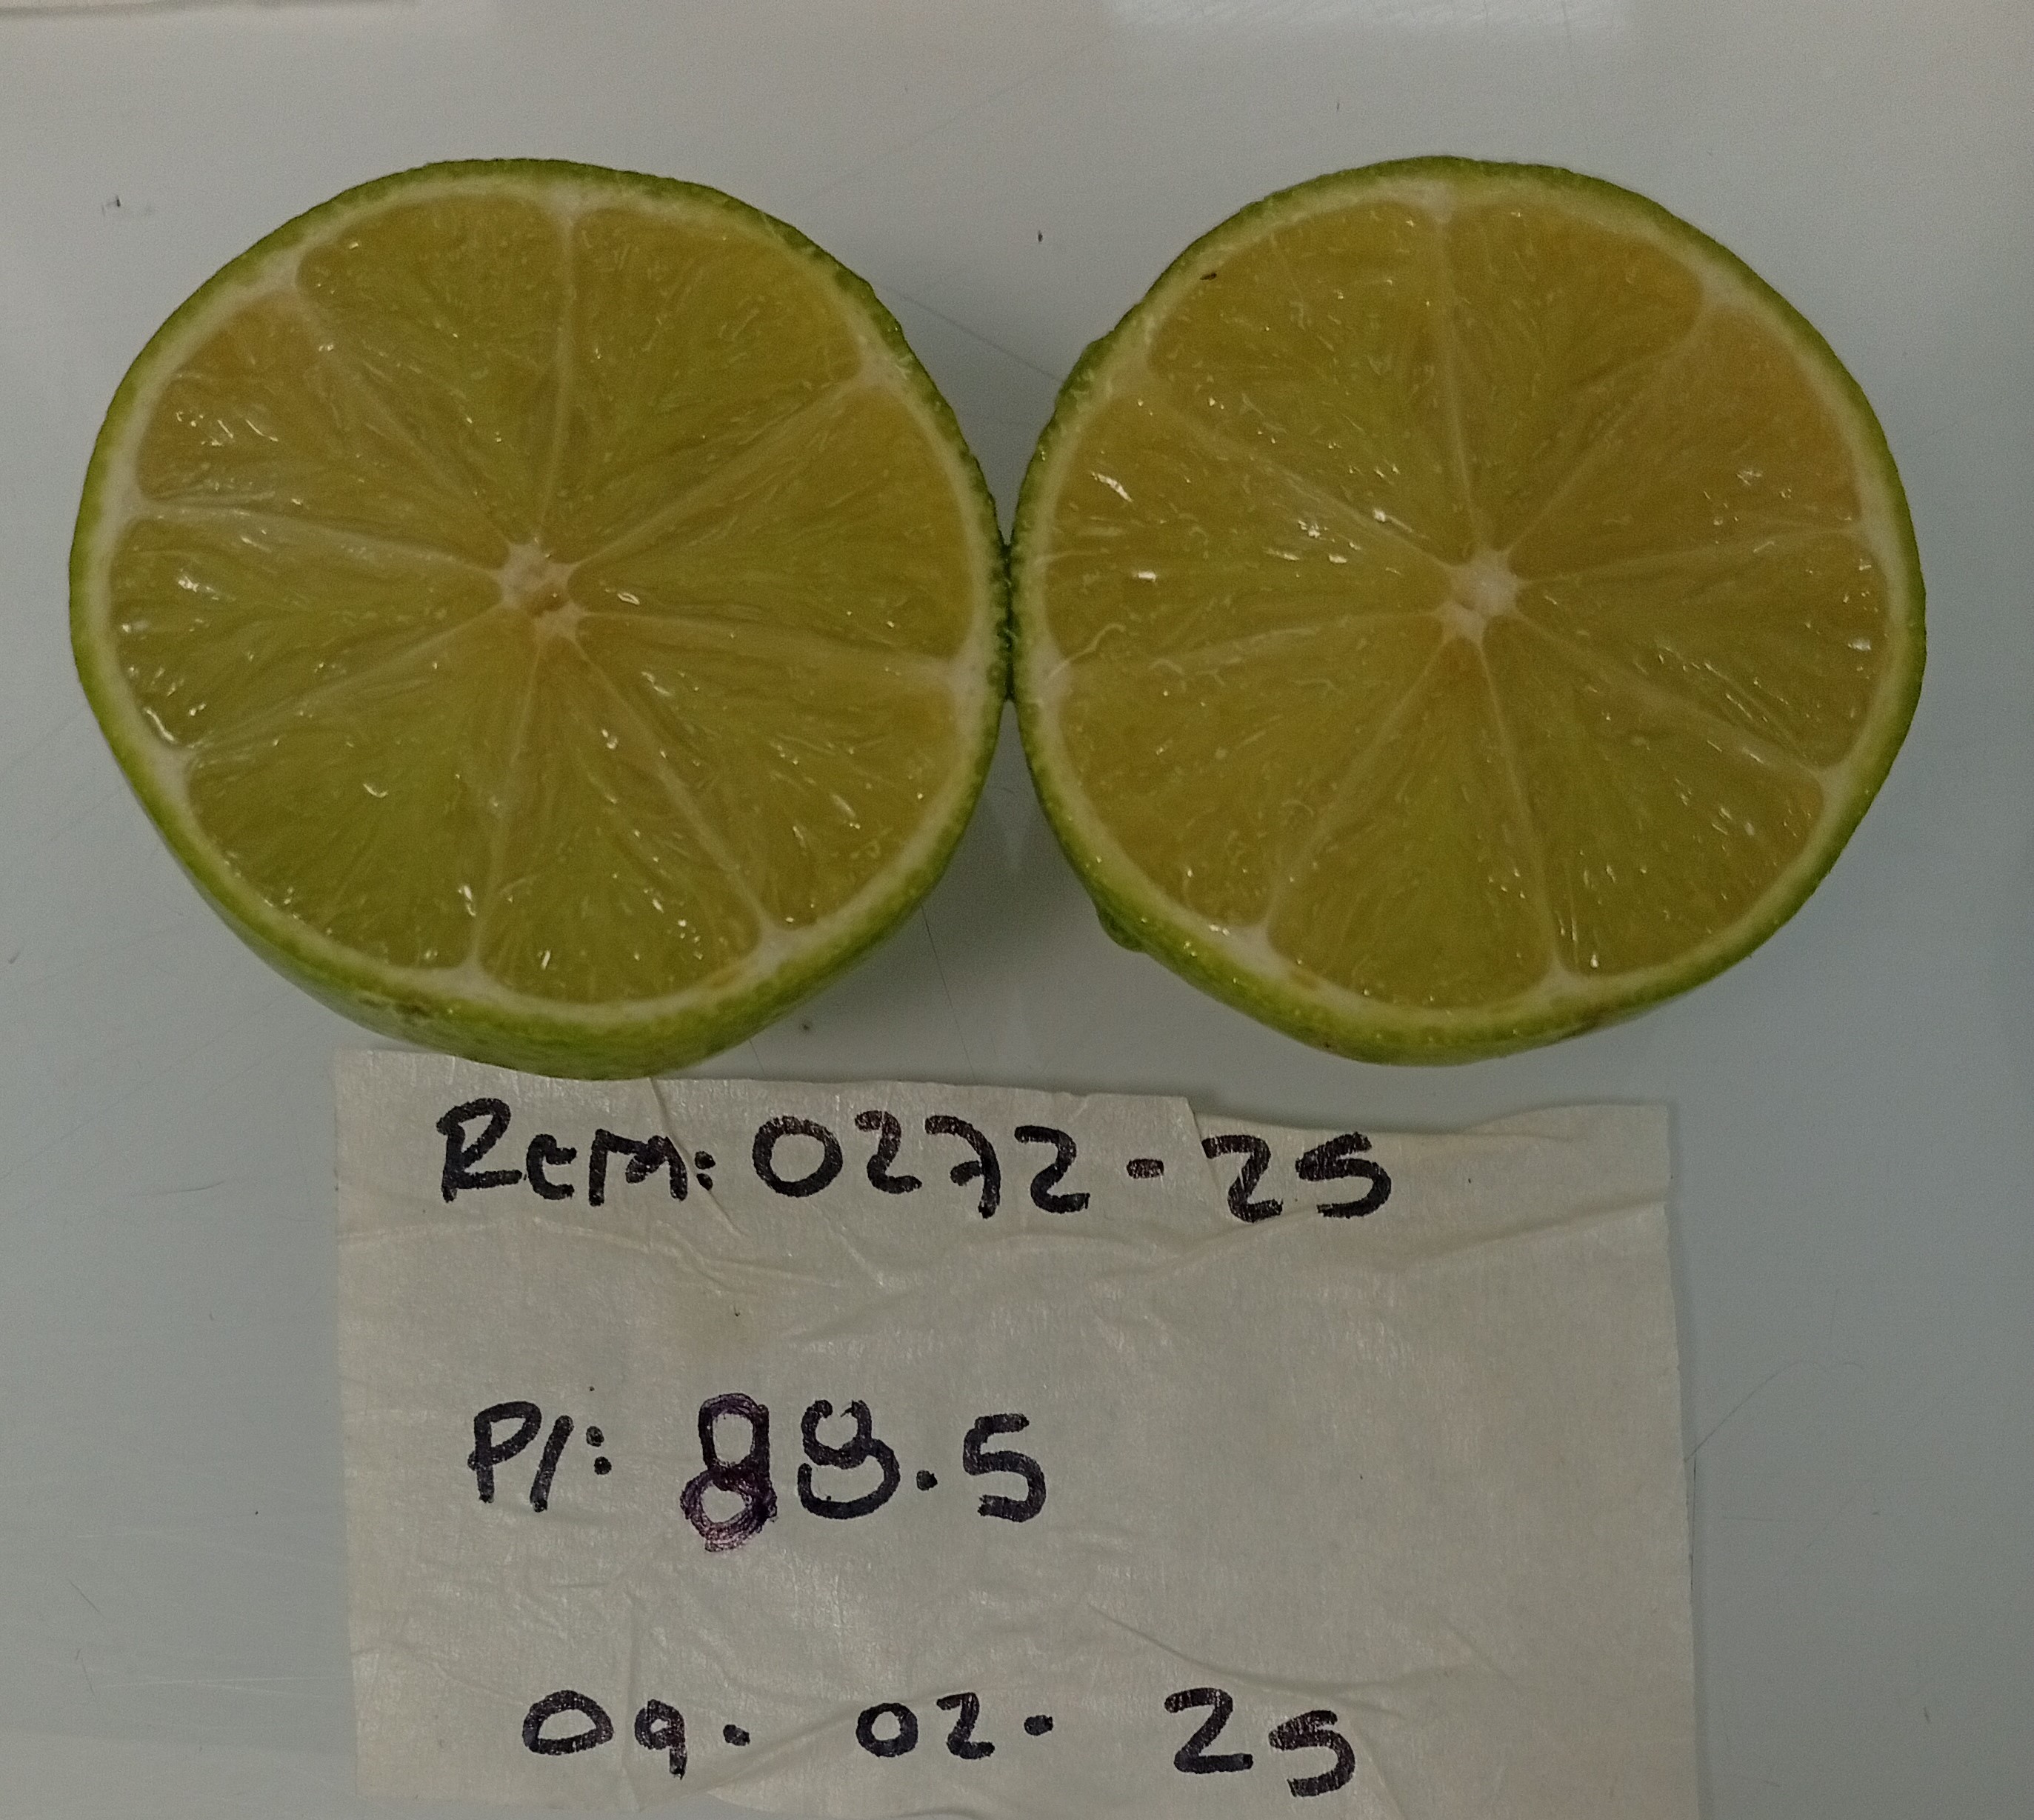 Rem: 0272-25
P/: 88.5
09. 02. 25